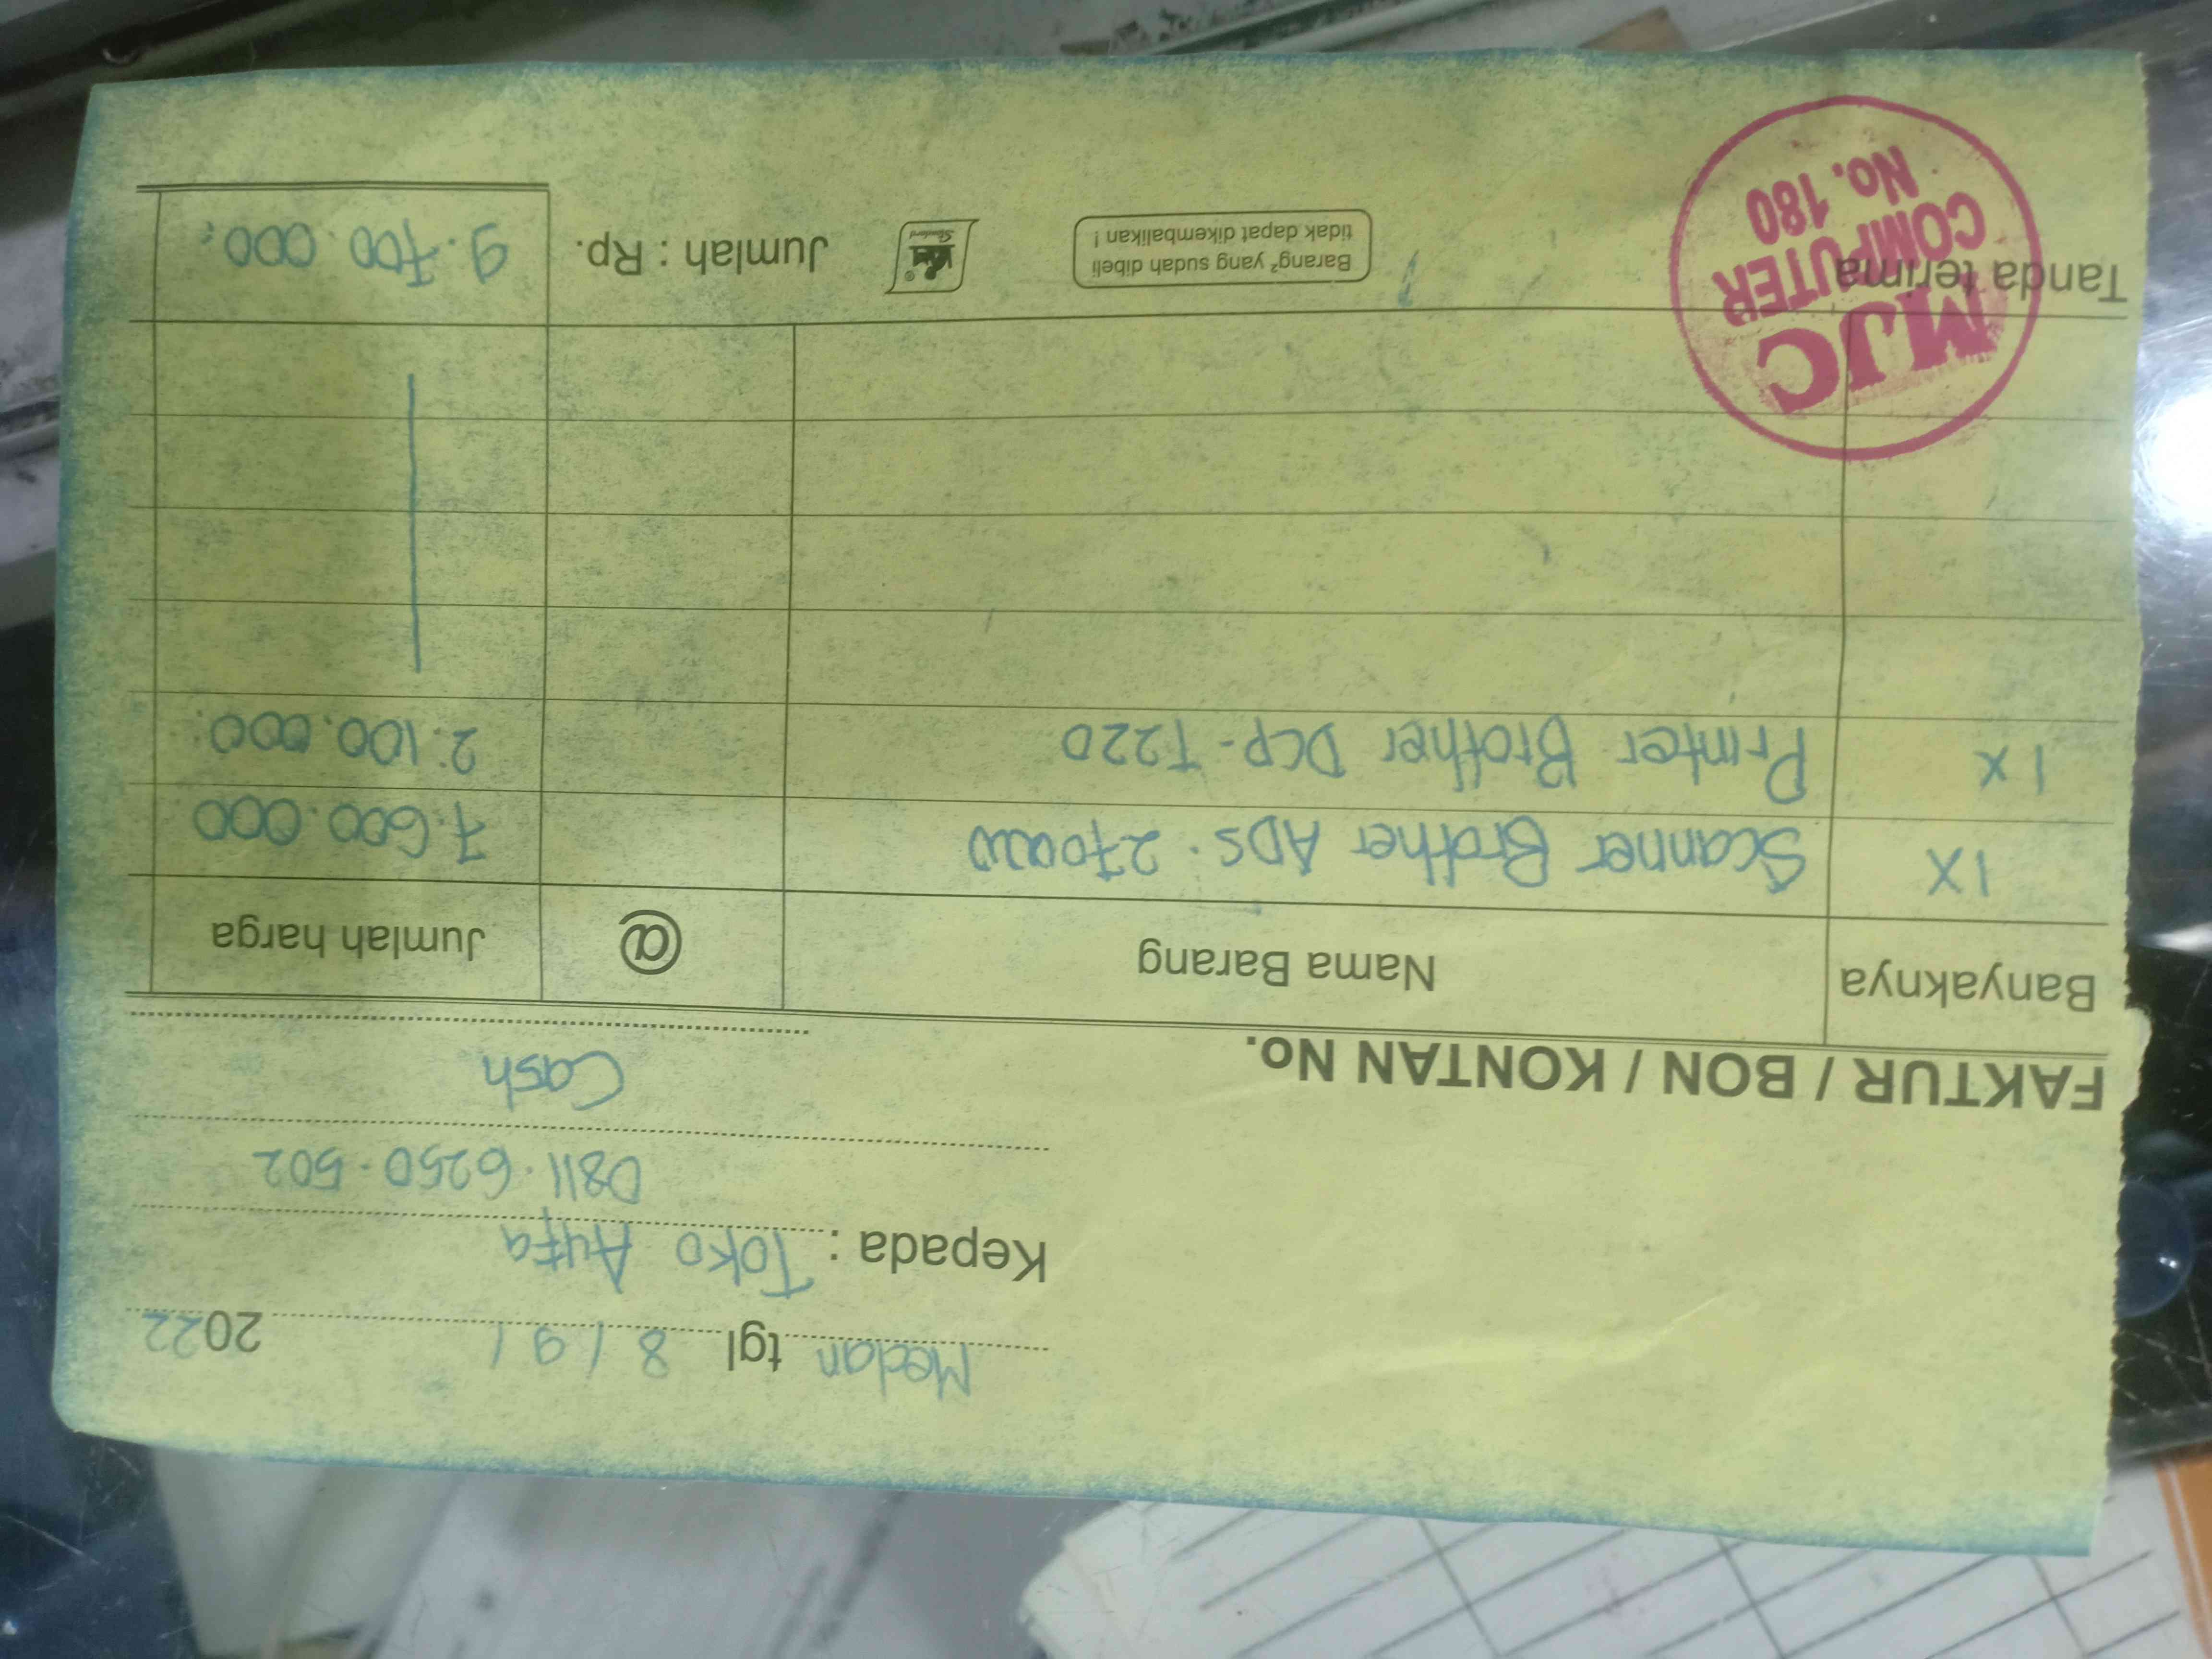 Medan tgl 8 / 9 / 2022
Kepada : Toko Ayfa
0811.6250.502
Cash
FAKTUR / BON / KONTAN No.
Banyaknya Nama Barang @ Jumlah harga
1X Scanner Brother ADS. 2700W 7.600.000
1X Printer Brother DCP-T220 2.100.000.
Tanda terima Barang² yang sudah dibeli tidak dapat dikembalikan ! Jumlah : Rp. 9.700.000,
MJC
COMPUTER
No. 180